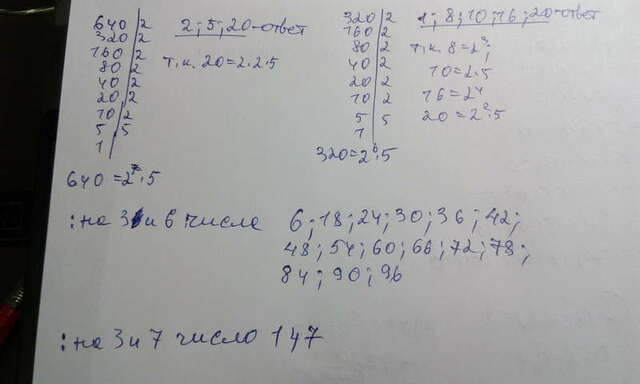 640|2
320|2
160|2
80|2
40|2
20|2
10|2
5|5
1|
640=2⁷·5
2; 5; 20-ответ
т.к. 20=2·2·5
320|2
160|2
80|2
40|2
20|2
10|2
5|5
1|
320=2⁶·5
1; 8; 10; 16; 20-ответ
т.к. 8=2³;
10=2·5
16=2⁴
20=2²·5
:на 3 и 6 числа 6; 18; 24; 30; 36; 42;
48; 54; 60; 66; 72; 78;
84; 90; 96
:на 3 и 7 число 147